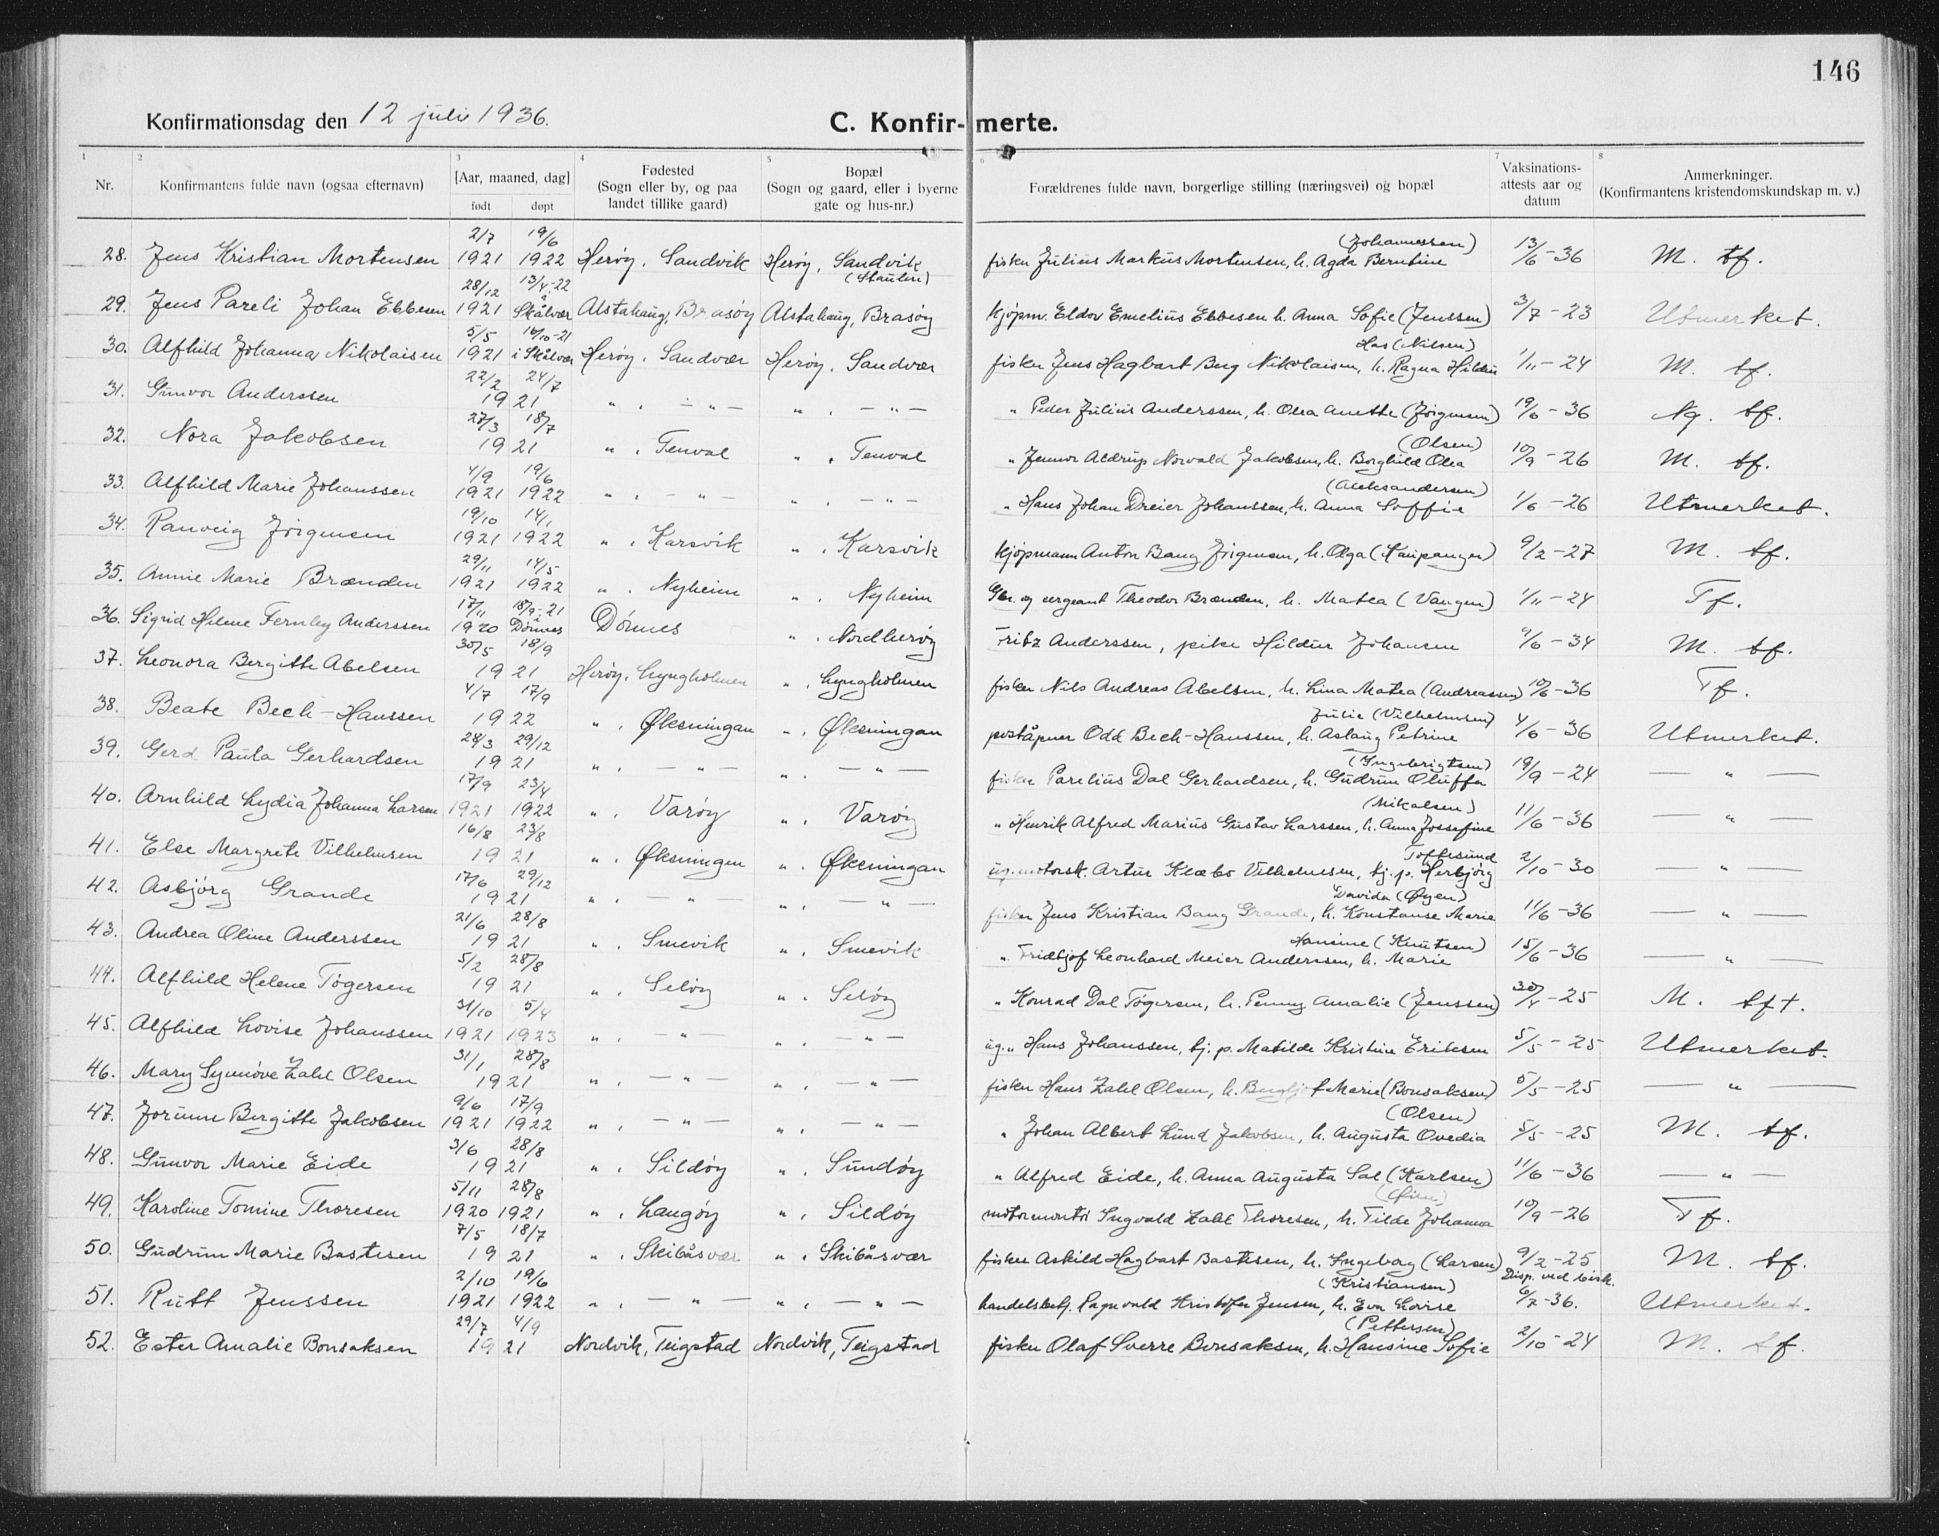 146
Konfirmationsdag den 12 juli 1936. C. Konfirmerte.
1 2 3 4 5 6 7 8
Nr. Konfirmantens fulde navn (ogsaa efternavn) [Aar, maaned, dag] født døpt Fødested (Sogn eller by, og paa landet tillike gaard) Bopæl (Sogn og gaard, eller i byerne gate og hus-nr.) Forældrenes fulde navn, borgerlige stilling (næringsvei) og bopæl Vaksinations-attests aar og datum Anmerkninger. (Konfirmantens kristendomskundskap m. v.)
28. Jens Kristian Mortensen 2/7 1921 19/6 1922 Herøy, Sandvik Herøy, Sandvik (Staulen) fisker Julius Markus Mortensen, h. Agda Berntine (Johannessen) 13/6-36 M. tf.
29. Jens Pareli Johan Ebbesen 28/12 1921 13/4-22 i Skålvær Alstahaug, Brasøy Alstahaug, Brasøy kjøpm. Eldor Emelius Ebbesen h. Anna Sofie (Jenssen) 3/7-23 Utmerket.
30. Alfhild Johanna Nikolaisen 5/5 1921 16/10-21 i Skålvær Herøy, Sandvær Herøy, Sandvær fisker Jens Hagbart Berg Nikolaisen, h. Ragna Hildur (Nilsen) 1/11-24 M. tf.
31. Gunvor Anderssen 22/2 24/7 1921 " , — " — " , — " — " Peder Julius Anderssen, h. Olea Anette (Jørgensen) 19/6-36 Ng. tf.
32. Nora Jakobsen 27/3 18/7 1921 " , Tenval " , Tenval " Aldrup Norvald Jakobsen, h. Borghild Olea (Olsen) 10/9-26 M. tf.
33. Alfhild Marie Johanssen 4/9 1921 19/6 1922 " , — " — " , — " — " Hans Johan Dreier Johanssen, h. Anna Soffie (Aleksandersen) 1/6-26 Utmerket.
34. Ranveig Jørgensen 19/10 1921 14/1 1922 " , Karsvik " , Karsvik kjøpmann Anton Bang Jørgensen, h. Olga (Kaupanger) 9/2-27 M. tf.
35. Annie Marie Brænden 29/11 1921 14/5 1922 " , Nyheim " , Nyheim Gbr. og sergeant Theodor Brænden, h. Matea (Vangen) 1/11-24 Tf.
36. Sigrid Helene Fernley Anderssen 17/11 1920 18/9-21 i Dønnes Dønnes " , Nordherøy Fritz Anderssen, pike Hildur Johansen 9/6-34 M. tf.
37. Leonora Bergitte Abelsen 30/5 18/9 1921 Herøy, Lyngholmen " , Lyngholmen fisker Nils Andreas Abelsen, h. Lina Matea (Andreassen) 10/6-36 Tf.
38. Beate Bech-Hanssen 4/7 17/9 1922 " , Øksningan " , Øksningan poståpner Odd Bech-Hanssen, h. Aslaug Petrine Julie (Vilhelmsen) 4/6-36 Utmerket.
39. Gerd Paula Gerhardsen 28/3 29/12 1921 " , — " — " , — " — fisker Parelius Dal Gerhardsen, h. Gudrun Oluffa (Ingebrigtsen) 19/9-24 — " —
40. Arnhild Lydia Johanna Larsen 17/9 1921 23/4 1922 " , Varøy " , Varøy " Henrik Alfred Marius Gustav Larssen, h. Anna Jossefine (Mikalsen) 11/6-36 — " —
41. Else Margrete Vilhelmsen 16/8 23/8 1921 " , Øksningen " , Øksningan ug. motorsk. Artur Klæbo Vilhelmsen, tj. p. Herbjörg Toftesund 2/10-30 — " —
42. Asbjörg Grande 17/6 29/12 1921 " , — " — " , — " — fisker Jens Kristian Bang Grande, h. Konstanse Marie Davida (Øyen) 11/6-36 — " —
43. Andrea Oline Anderssen 21/6 28/8 1921 " , Smevik " , Smevik " Fridtjof Leonhard Meier Anderssen, h. Marie Hansine (Knutsen) 15/6-36 — " —
44. Alfhild Helene Tøgersen 5/2 28/8 1921 " , Seløy " , Seløy " Konrad Dal Tøgersen, h. Penny Amalie (Jenssen) 30/4-25 M. tft.
45. Alfhild Lovise Johanssen 31/10 1921 5/4 1923 " , — " — " , — " — ug. " Hans Johanssen, tj. p. Matilde Kristine Eriksen 5/5-25 Utmerket.
46. Mary Synnøve Zahl Olsen 31/1 28/8 1921 " , — " — " , — " — fisker Hans Zahl Olsen, h. Bergljot Marie (Bonsaksen) 5/5-25 — " —
47. Jorunn Bergitte Jakobsen 9/6 1921 17/9 1922 " , — " — " , — " — " Johan Albert Lund Jakobsen, h. Augusta Ovedia (Olsen) 5/5-25 M. tf.
48. Gunvor Marie Eide 3/6 28/8 1921 " , Sildøy " , Sundøy " Alfred Eide, h. Anna Augusta Sal (Karlsen) 11/6-36 — " —
49. Karoline Tomine Thoresen 5/11 1920 28/8 1921 " , Langøy " , Sildøy motormontør Ingvald Zahl Thoresen, h. Tilde Johanna 10/9-26 Tf.
50. Gudrun Marie Bastesen 7/5 18/7 1921 " , Skibåsvær " , Skibåsvær fisker Askild Hagbart Bastesen, h. Ingeborg (Larsen) 9/2-25 M. tf.
51. Rutt Jenssen 2/10 1921 19/6 1922 " , — " — " , — " — handelsbetj. Ragnvald Kristofer Jensen, h. Eva Lovise (Kristiansen) Disp. ved bisk. 6/7-36. Utmerket.
52. Ester Amalie Bonsaksen 29/7 4/9 1921 Nordvik, Teigstad Nordvik, Teigstad fisker Olaf Sverre Bonsaksen, h. Hansine Sofie (Pettersen) 2/10-24 M. tf.